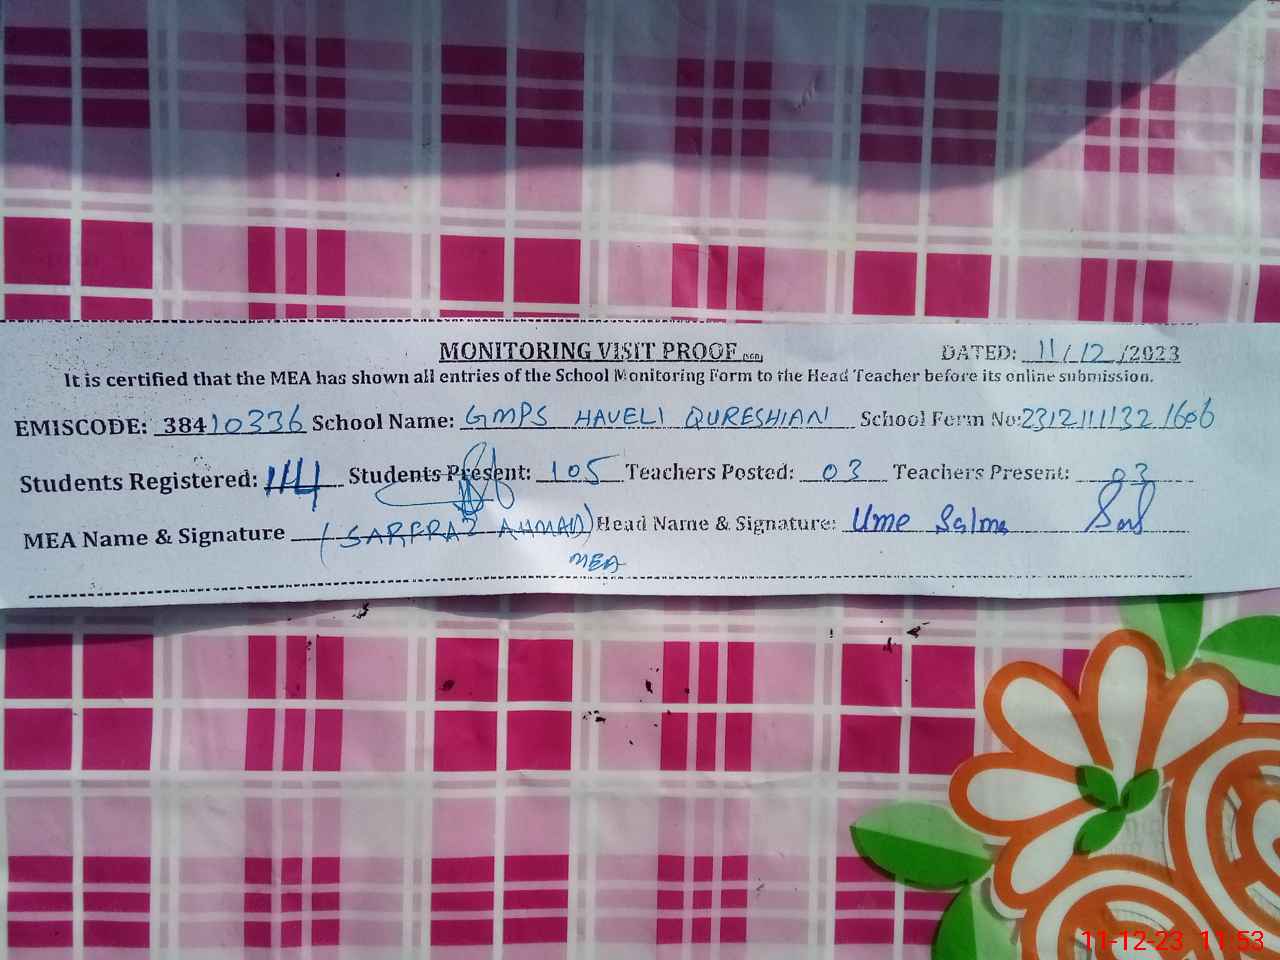 MONITORING VISIT PROOF DATED: 11/12/2023
It is certified that the MEA has shown all entries of the School Monitoring Form to the Head Teacher before its online submission.
EMISCODE: 38410336 School Name: GMPS HAVELI QURESHIAN School Form No: 2312111132 1606
Students Registered: 114 Students Present: 105 Teachers Posted: 03 Teachers Present: 03
MEA Name & Signature (SARFRAZ AHMAD) Head Name & Signature: Ume Salma
MEA
11-12-23 11:53